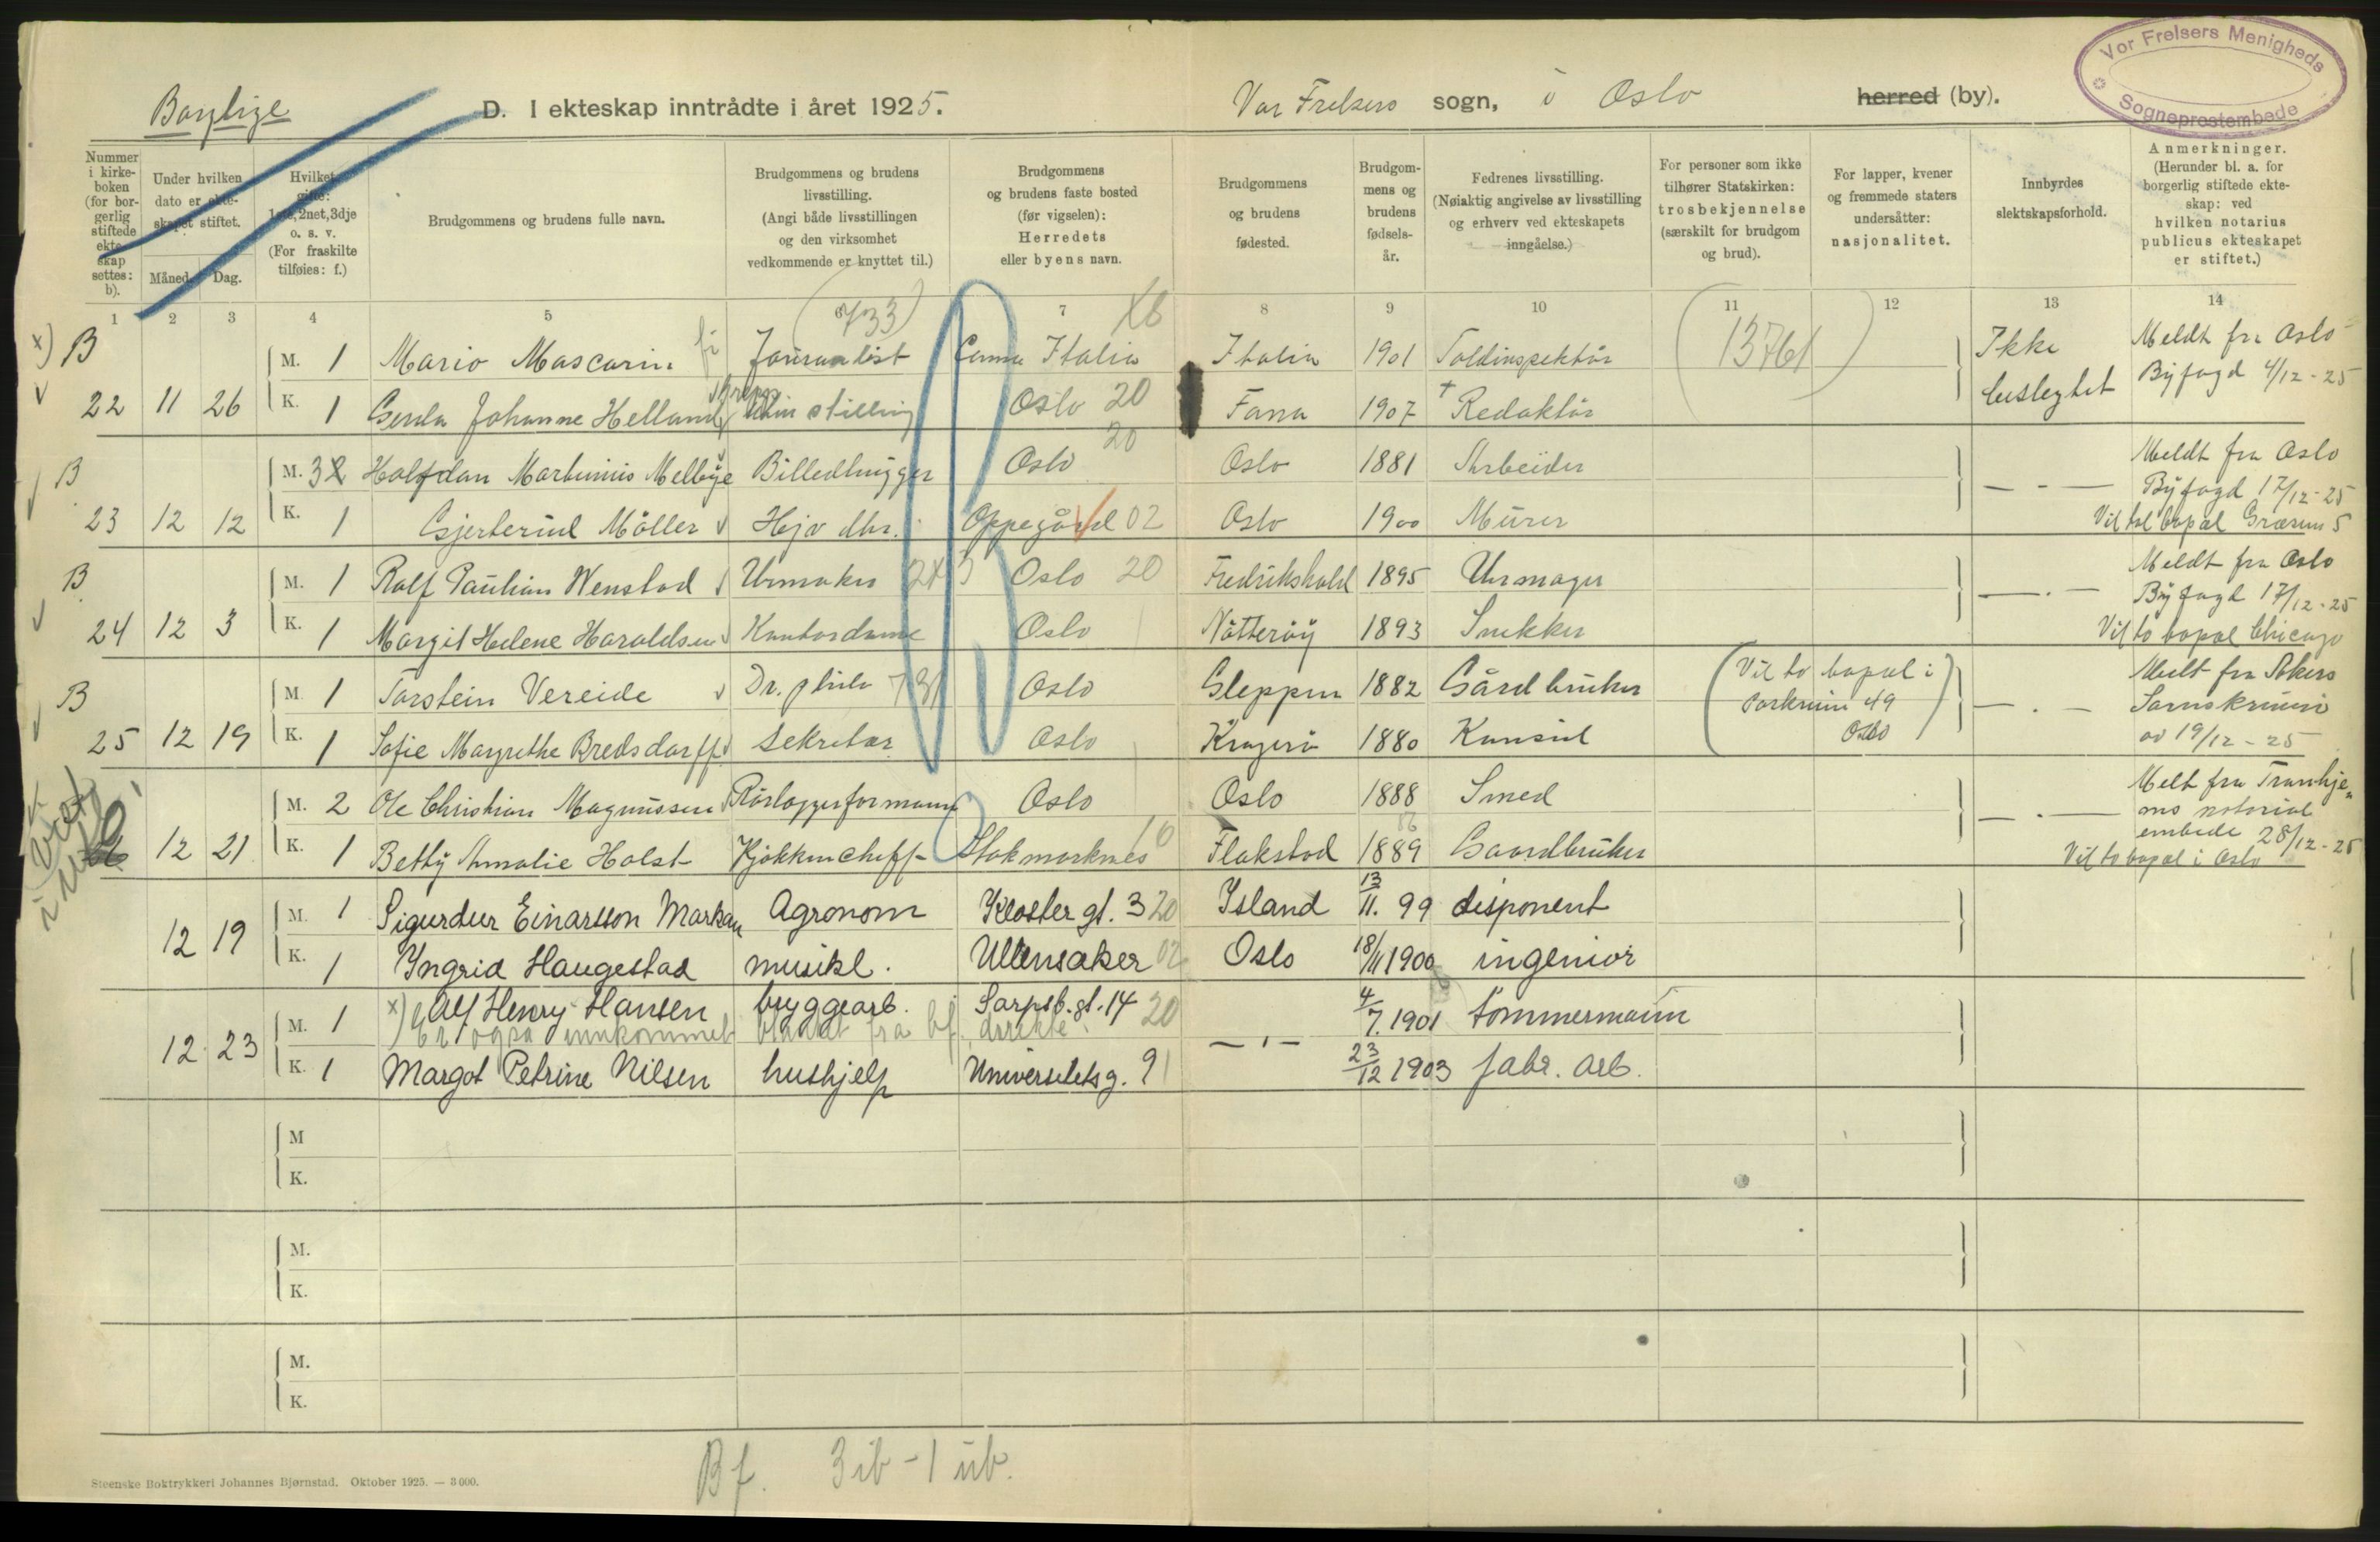 Borglige
D. I ekteskap inntrådte i året 1925.
Vor Frelsers sogn, i Oslo herred (by).
Vor Frelsers Menigheds
Sogneprestembede
Nummer i kirkeboken (for borgerlig stiftede ekteskap settes: b).
Under hvilken dato er ekteskapet stiftet.
Måned. Dag.
Hvilket gifte: 1ste, 2net, 3dje o. s. v. (For fraskilte tilføies: f.)
Brudgommens og brudens fulle navn.
Brudgommens og brudens livsstilling. (Angi både livsstillingen og den virksomhet vedkommende er knyttet til.)
Brudgommens og brudens faste bosted (før vigselen): Herredets eller byens navn.
Brudgommens og brudens fødested.
Brudgommens og brudens fødselsår.
Fedrenes livsstilling. (Nøiaktig angivelse av livsstilling og erhverv ved ekteskapets inngåelse.)
For personer som ikke tilhører Statskirken: trosbekjennelse (særskilt for brudgom og brud).
For lapper, kvener og fremmede staters undersåtter: nasjonalitet.
Innbyrdes slektskapsforhold.
Anmerkninger. (Herunder bl. a. for borgerlig stiftede ekteskap: ved hvilken notarius publicus ekteskapet er stiftet.)
1 2 3 4 5 6 7 8 9 10 11 12 13 14
x) B M. 1 Mario Mascarin Journalist (733) Italia X6 Italia 1901 Toldinspektör (13761) Ikke Meldt fra Oslo
22 11 26 K. 1 Gerda Johanne Helland Uten stilling Oslo 20 Fana 1907 + Redaktör beslegtet Byfogd 4/12-25
B M. 3 Halfdan Martinius Mellbye Billedhugger Oslo 20 Oslo 1881 Arbeider Meldt fra Oslo
23 12 12 K. 1 Gjertrud Möller Hjo dtr. Oppegård 02 Oslo 1900 Murer — " — Byfogd 17/12-25
Vil ta bopal 5
B M. 1 Rolf Paulian Wenstad Urmaker Oslo 20 Fredrikshald 1895 Uhrmager Meldt fra Oslo
24 12 3 K. 1 Margit Helene Haraldsen Kontordame Oslo Nötteröy 1893 Snekker — " — Byfogd 17/12-25
Vil ta bopal Chicago
B M. 1 Torstein Vereide Dr. philo 731 Oslo Gloppen 1882 Gårdbruker (Vil ta bopal i Meldt fra Akers
Parkveien 49 Oslo) — " — Sorenskriveri
25 12 19 K. 1 Sofie Margrethe Bredsdorff Sekretær Oslo Kragerö 1880 Konsul av 19/12-25
M. 2 Ole Christian Magnussen Rörleggerformann Oslo Oslo 1888 Smed Melt fra Tronhjems notorial
12 21 K. 1 Betty Amalie Holst Kjökkencheff Stokmarknes 16 Flakstad 1889 Gaardbruker — " — embede 28/12-25
Vil ta bopal i Oslo
M. 1 Sigurdur Einarsson Markan Agronom Kloster gt. 3 20 Island 13/11. 99 disponent
12 19 K. 1 Yngrid Haugestad musikl. Ullensaker 02 Oslo 18/11 1900 ingeniør
M. 1 x) Alf Henry Hansen bryggearb. Sarpsb. gt. 14 20 4/7. 1901 tömmermann
Er også innkommet blandt fra bf. direkte
12 23 K. 1 Margot Petrine Nilsen hushjelp Universitetsg. 9 — " — 23/12 1903 fabr. arb.
M
K.
M.
K.
M.
K.
Bf. 3 ib - 1 ub.
Steenske Boktrykkeri Johannes Bjørnstad. Oktober 1925. — 3 000.